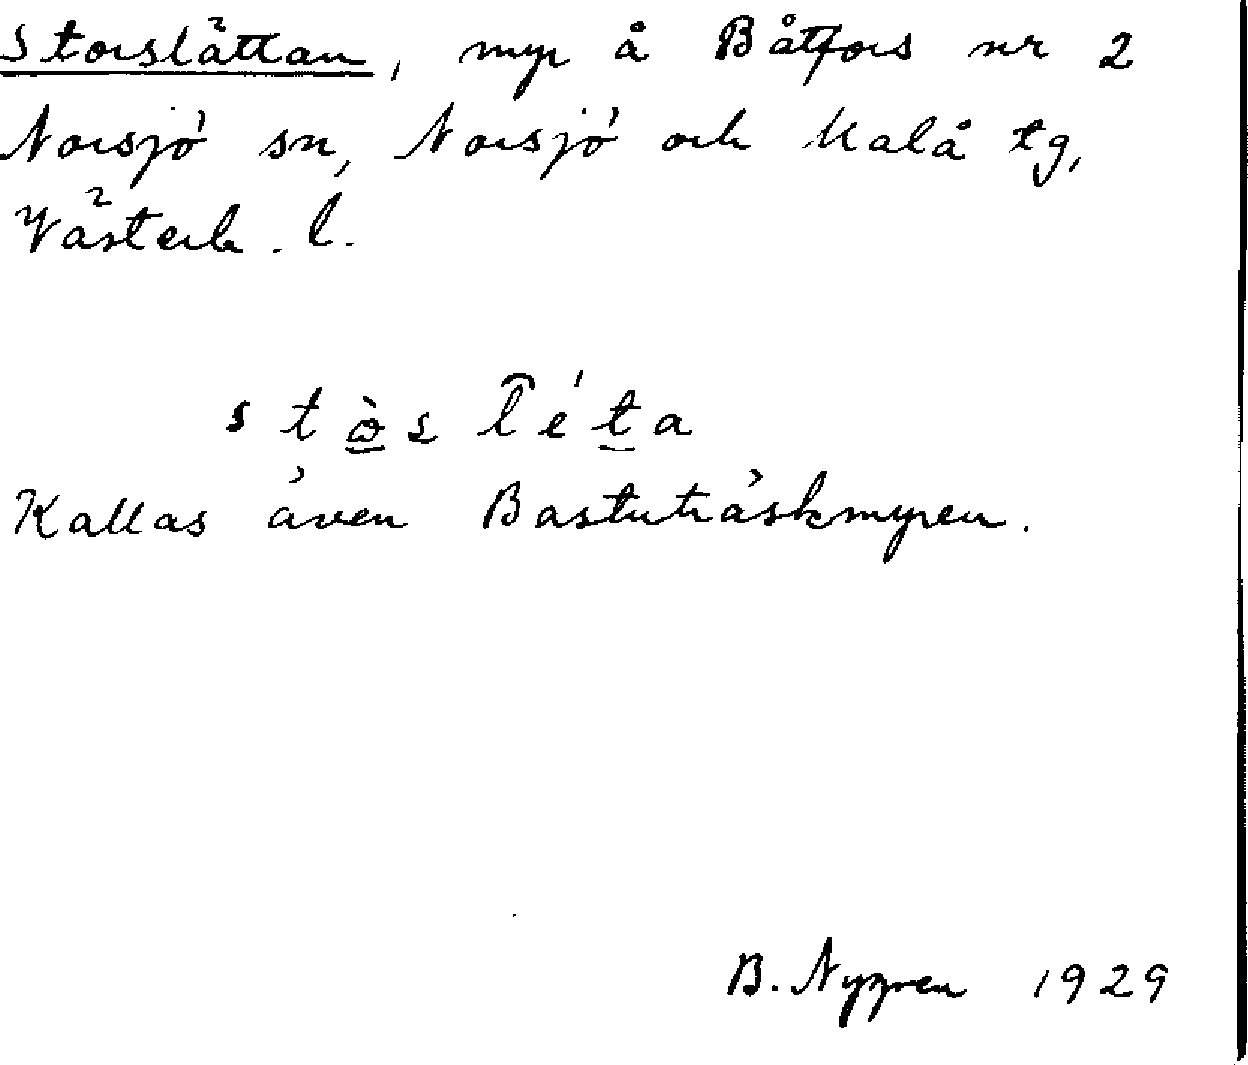 Storslättan, myr å Båtfors nr 2
Norsjö sn, Norsjö och Malå tg,
Västerb. l.
stòs l̑éta
Kallas även Bastuträskmyren.
B. Nygren 1929